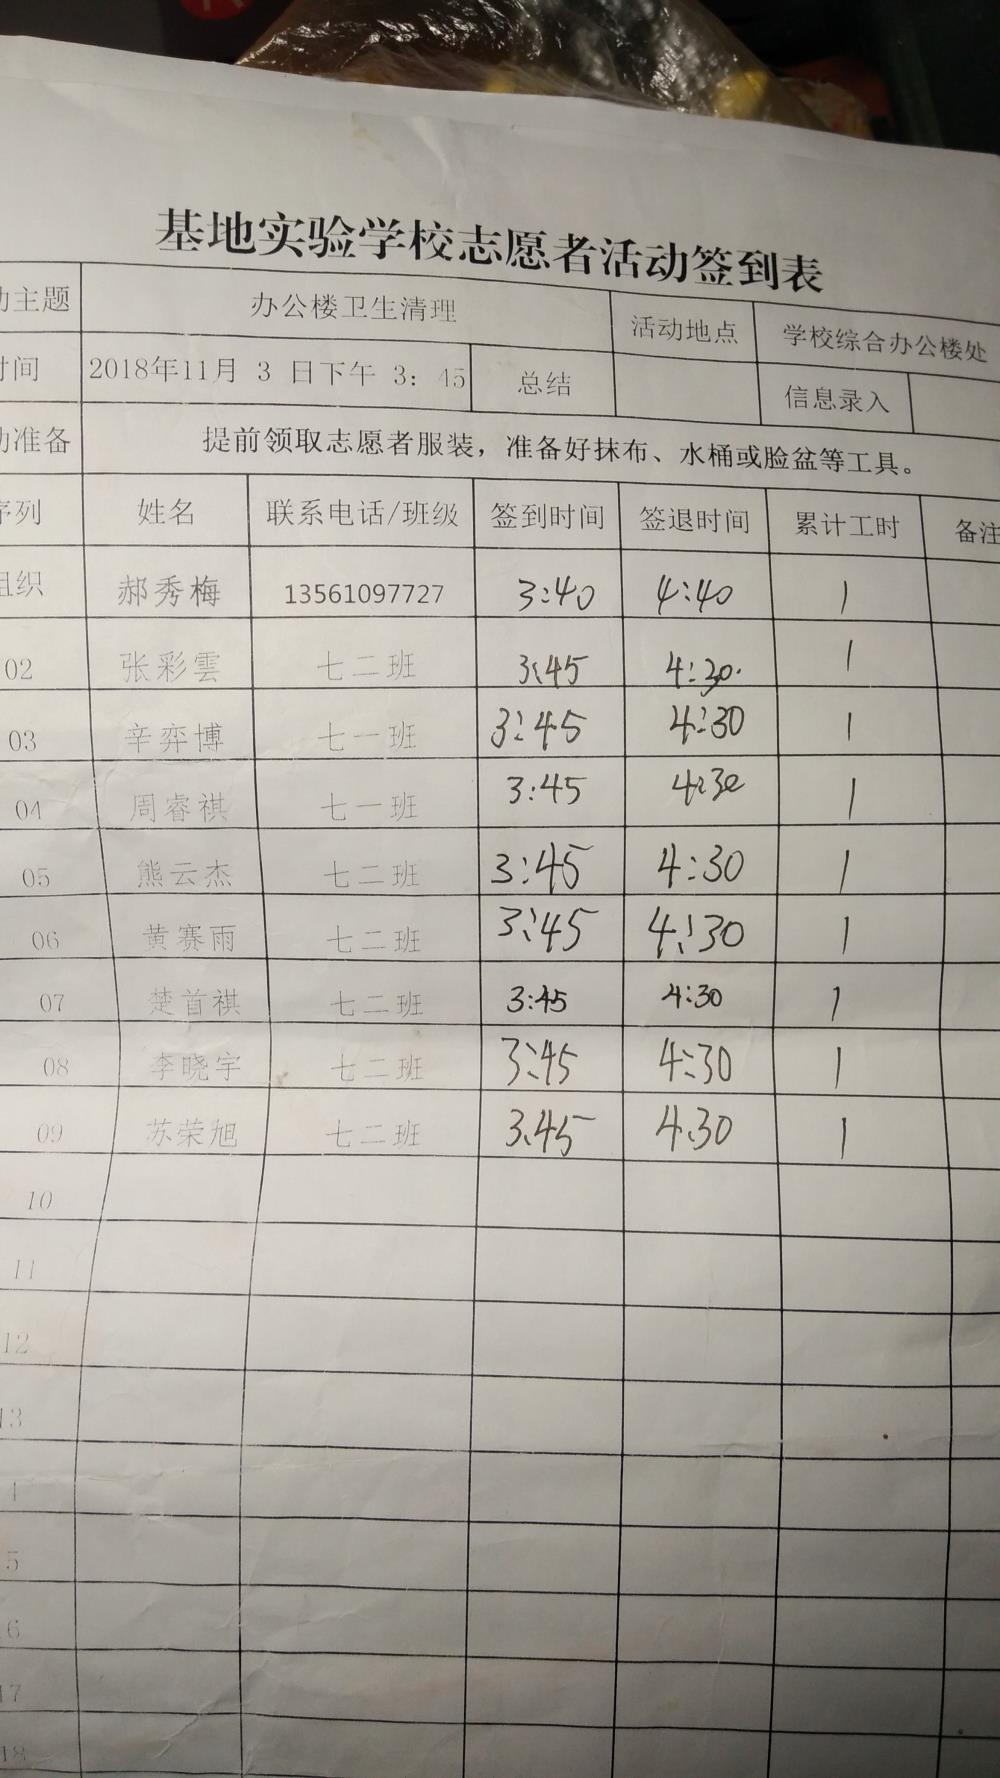 基地实验学校志愿者活动签到表
动主题 办公楼卫生清理 活动地点 学校综合办公楼处
时间 2018年11月 3 日下午 3: 45 总结 信息录入
动准备 提前领取志愿者服装，准备好抹布、水桶或脸盆等工具。
序列 姓名 联系电话/班级 签到时间 签退时间 累计工时 备注
组织 郝秀梅 13561097727 3:40 4:40 1
02 张彩雲 七二班 3:45 4:30. 1
03 辛弈博 七一班 3:45 4:30 1
04 周睿祺 七一班 3:45 4:30 1
05 熊云杰 七二班 3:45 4:30 1
06 黄赛雨 七二班 3:45 4:30 1
07 楚首祺 七二班 3:45 4:30 1
08 李晓宇 七二班 3:45 4:30 1
09 苏荣旭 七二班 3.45 4.30 1
10
11
12
13
4
5
6
17
18